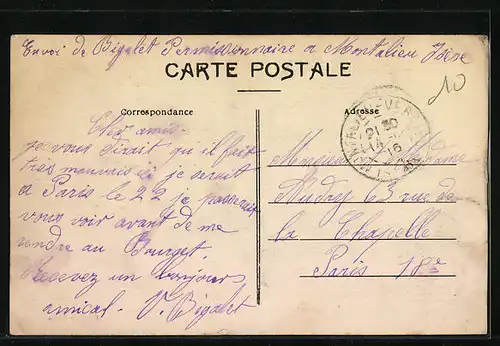 Envoi de Bigalet Permissionnaire a Montalieu Isère
CARTE POSTALE
Correspondance
Adresse
10
Cher amis
je vous dirait qu'il fait
très mauvais je serait
a Paris le 22 je passerait
vous voir avant de me
rendre au Bourget.
Recevez un bonjours
amical. V. Bigalet
Monsieur Madame
Audry 63 rue de
la Chapelle
Paris 18e